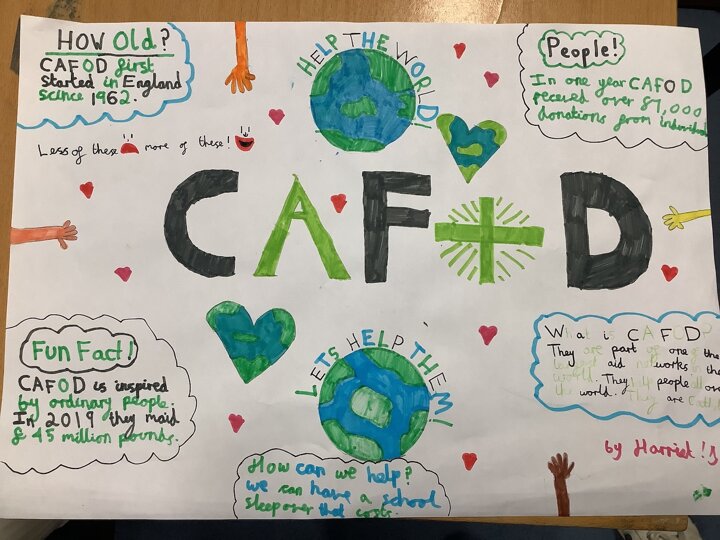 How Old?
CAFOD first
started in England
scince 1962.
Less of these more of these!
HELP THE WORLD!
People!
In one year CAFOD
receved over 81,000
donations from individual
CAFOD
Fun Fact!
CAFOD is inspired
by ordinary people.
In 2019 they maid
£ 45 million pounds.
LETS HELP THEM!
How can we help?
we can have a school
sleepover that costs.
What is CAFOD?
They are part of one of the
aid works in the
world. They people
the world. They are
by Harriet!